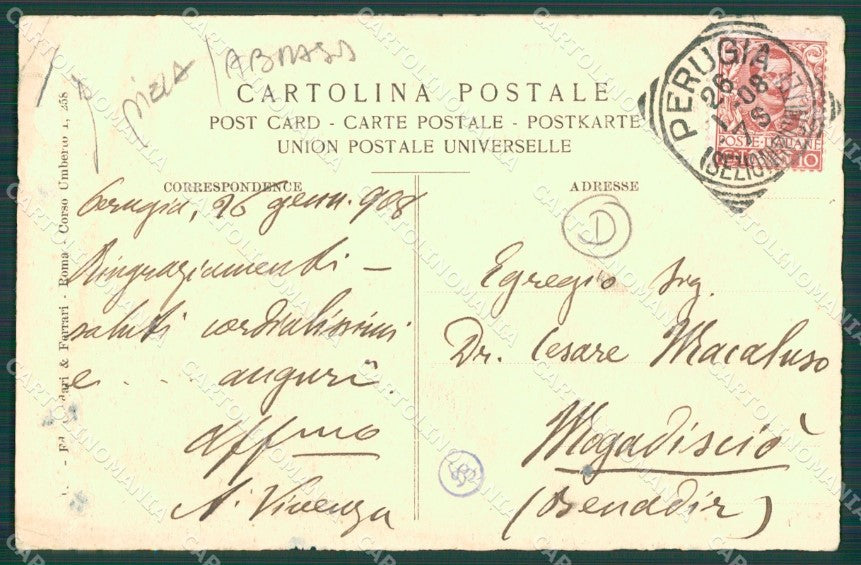 ABRASS
CARTOLINA POSTALE
POST CARD - CARTE POSTALE - POSTKARTE
UNION POSTALE UNIVERSELLE
PERUGIA
26
1-08
7 S
POSTE ITALIANE
10
CORRESPONDENCE
Perugia, 26 genn. 908
Ringraziamenti -
saluti cordialissimi
e . . . auguri.
affmo
A. Vivenza
ADRESSE
D
Egregio Sig.
Dr. Cesare Macaluso
Mogadisciò
(Benadir)
ari & Ferrari - Roma - Corso Umberto I, 258
CARTOLINOMANIA